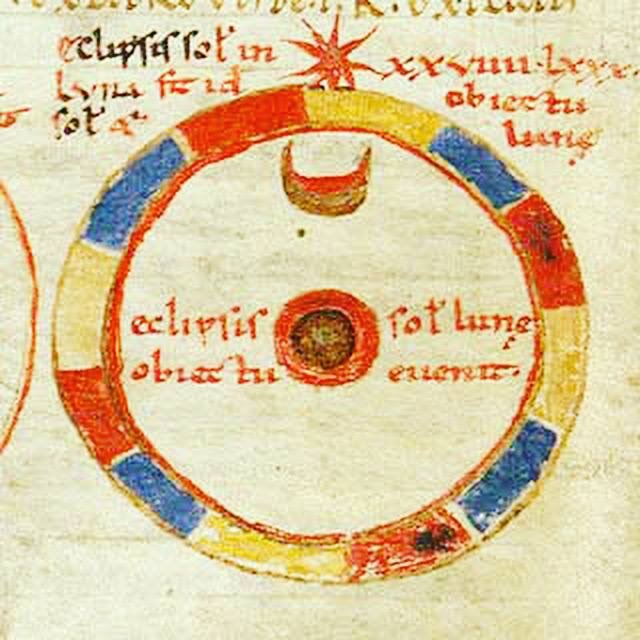 eclipsis sol in
luna fit id
sol
xxviiii lxxx
obiectu
lunę
eclipsis sol lunę
obiectu euenit.